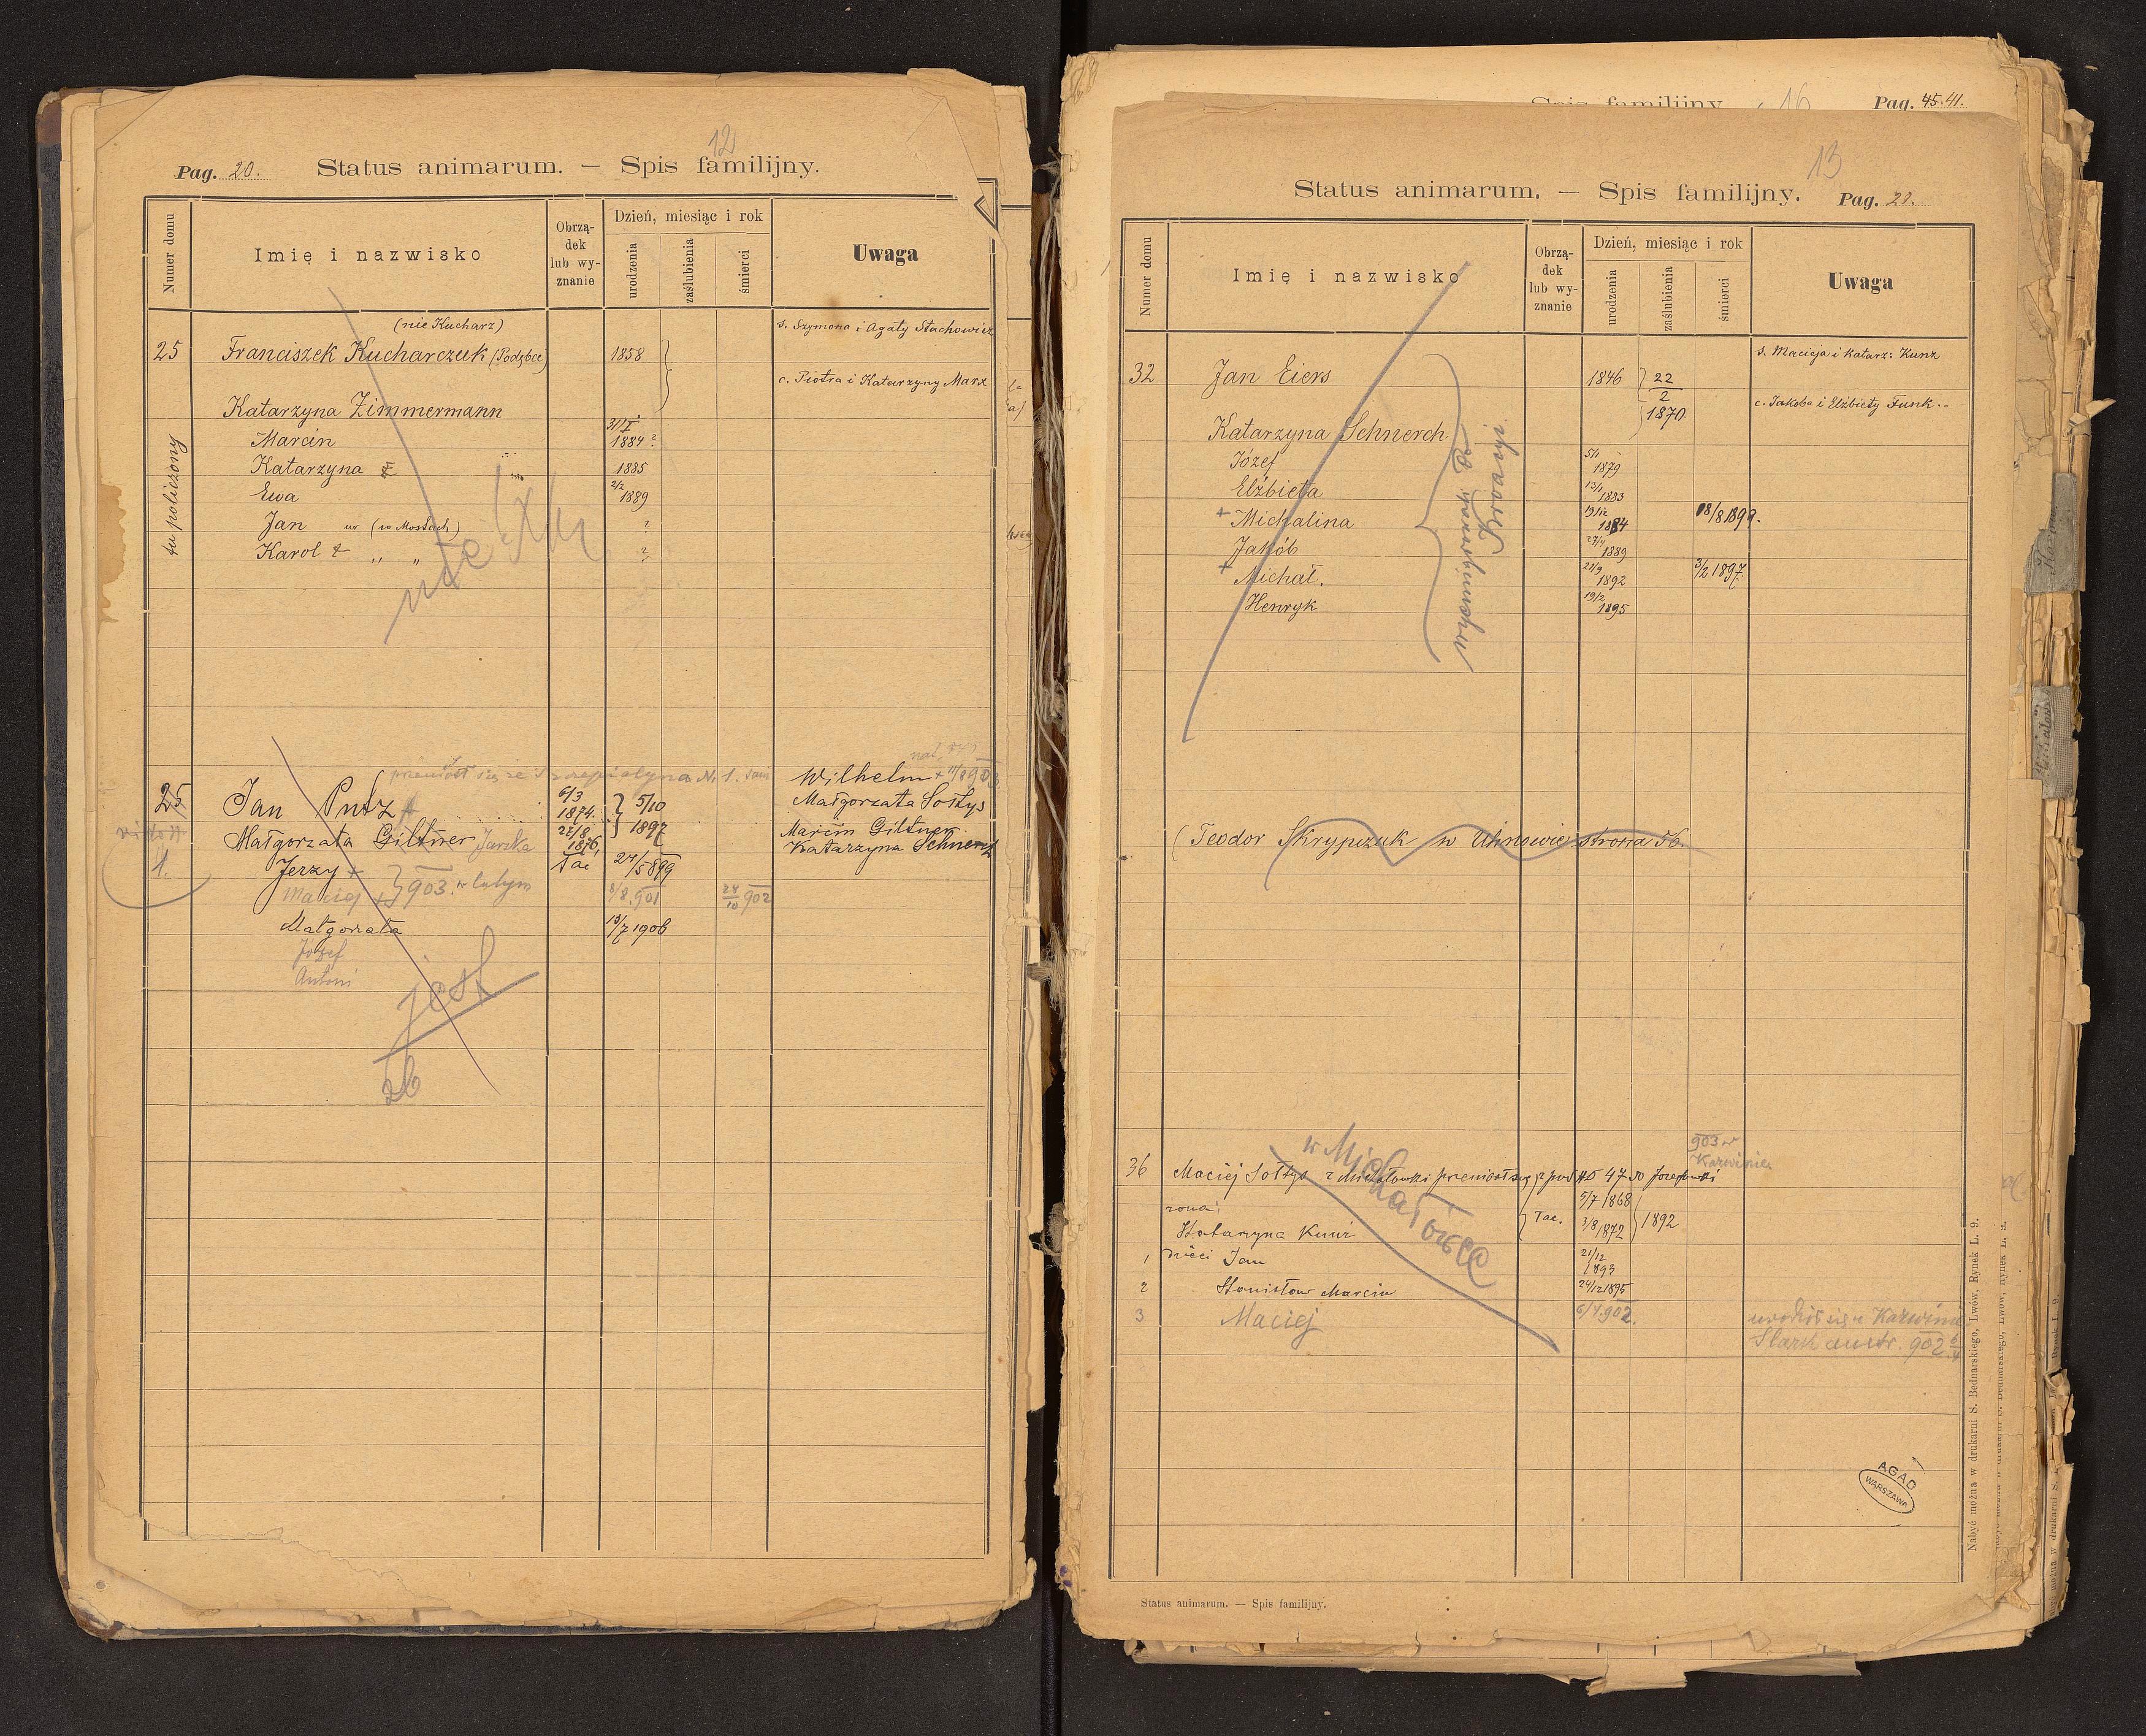 12
Pag. 20. Status animarum. — Spis familijny.
Numer domu
Imię i nazwisko
Obrzą-
dek
lub wy-
znanie
Dzień, miesiąc i rok
urodzenia
zaślubienia
śmierci
Uwaga
(nie Kucharz)
s. Szymona i Agaty Stachowicz
25 Franciszek Kucharczuk 1858
c. Piotra i Katarzyny Marx
Katarzyna Zimmermann
Marcin 1884 ?
Katarzyna 1885
Ewa 2/2 1889
Jan ur (w Mostach) ?
Karol + „ „ ?
tu policzony
25 Jan Putz 6/3 1874 5/10 1897 Wilhelm + 11/8 903
Małgorzata Sołtys
Małgorzata Giltner 1876 Marcin Giltner
Katarzyna Schnerch
1. Jerzy + Tac 24/5 899
Maciej + 903. w lutym 8/8.901 24/10 902
Małgorzata 13/7 1906
Józef
Antoni
jest
26
Spis familijny 16 Pag. 45.41.
13
Status animarum. — Spis familijny. Pag. 21.
Numer domu
Imię i nazwisko
Obrzą-
dek
lub wy-
znanie
Dzień, miesiąc i rok
urodzenia
zaślubienia
śmierci
Uwaga
s. Macieja i Katarz: Kunz
32 Jan Eiers 1846 22/2 1870
c. Jakoba i Elżbiety Funk.-
Katarzyna Schnerch
Józef 5/1 1879
Elżbieta 13/1 1883
+ Michalina 1884 18/8 1899.
Jakób 1889
+ Michał. 21/9 1892 3/2 1897
Henryk 19/2 1895
(Teodor Skrypczuk w Uhnowie strona 56.
903 w
Karwinie
36 Maciej Sołtys z Michałowki przeniósł się z pod No 47 do Józefówki
w Michałówce
5/7 1868
żona:
Katarzyna Kunz Tac. 3/8 1872 1892
1 dzieci Jan 21/12 1893
2 Stanisław Marcin 24/12 1895
3 Maciej 6/4.902. urodził się w Karwinie
Śląsk austr. 902 6/4
AGAD
WARSZAWA
Nabyć można w drukarni S. Bednarskiego, Lwów, Rynek L. 9.
Status animarum. — Spis familijny.